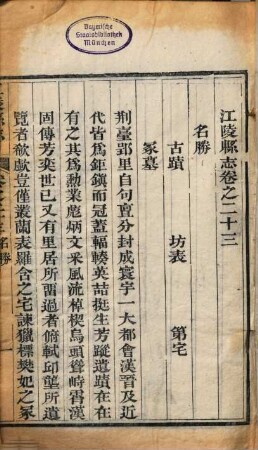 Bayerische
Staatsbibliothek
München
江陵縣志卷之二十三
名勝
古蹟 坊表 第宅
冢墓
荆臺郢里自句亶分封成寰宇一大都會漢晉及近
代皆為鉅鎮而冠蓋輻輳英喆挺生芳蹤遺蹟在在
有之其為勲業彪炳文采風流棹楔烏頭聳峙霄漢
固傳芳奕世已又有里居所廬過者俯軾邱壟所遺
覽者欷歔豈僅叢蘭表羅含之宅諫獵標樊妃之冢